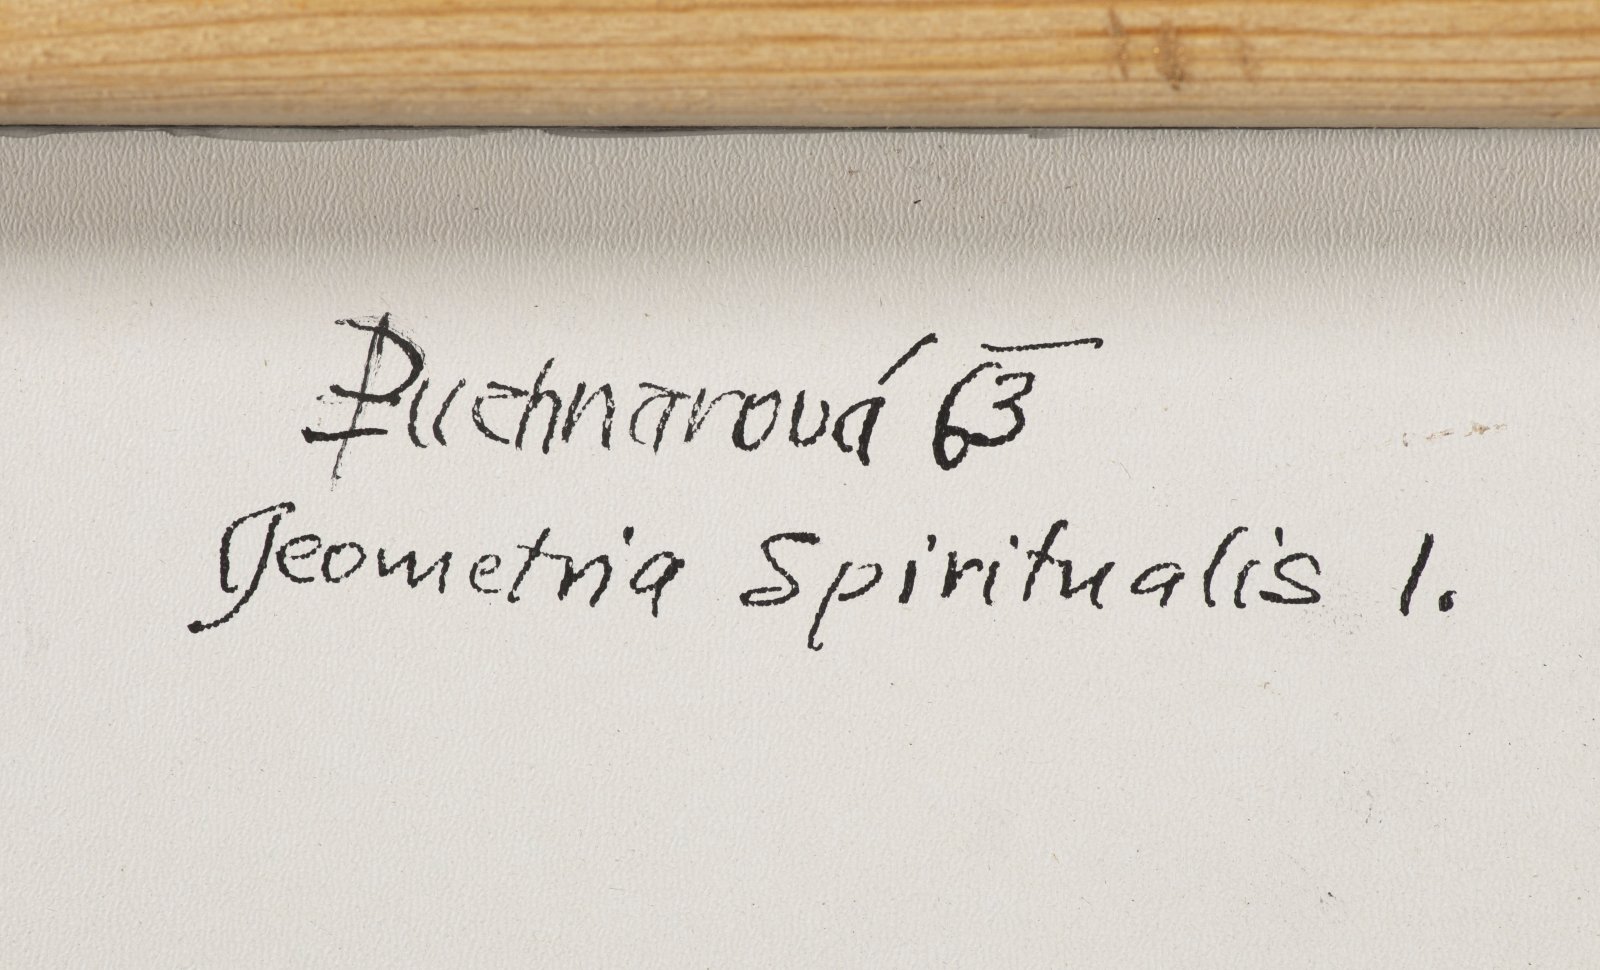 Puchnarová 63
Geometria Spiritualis 1.